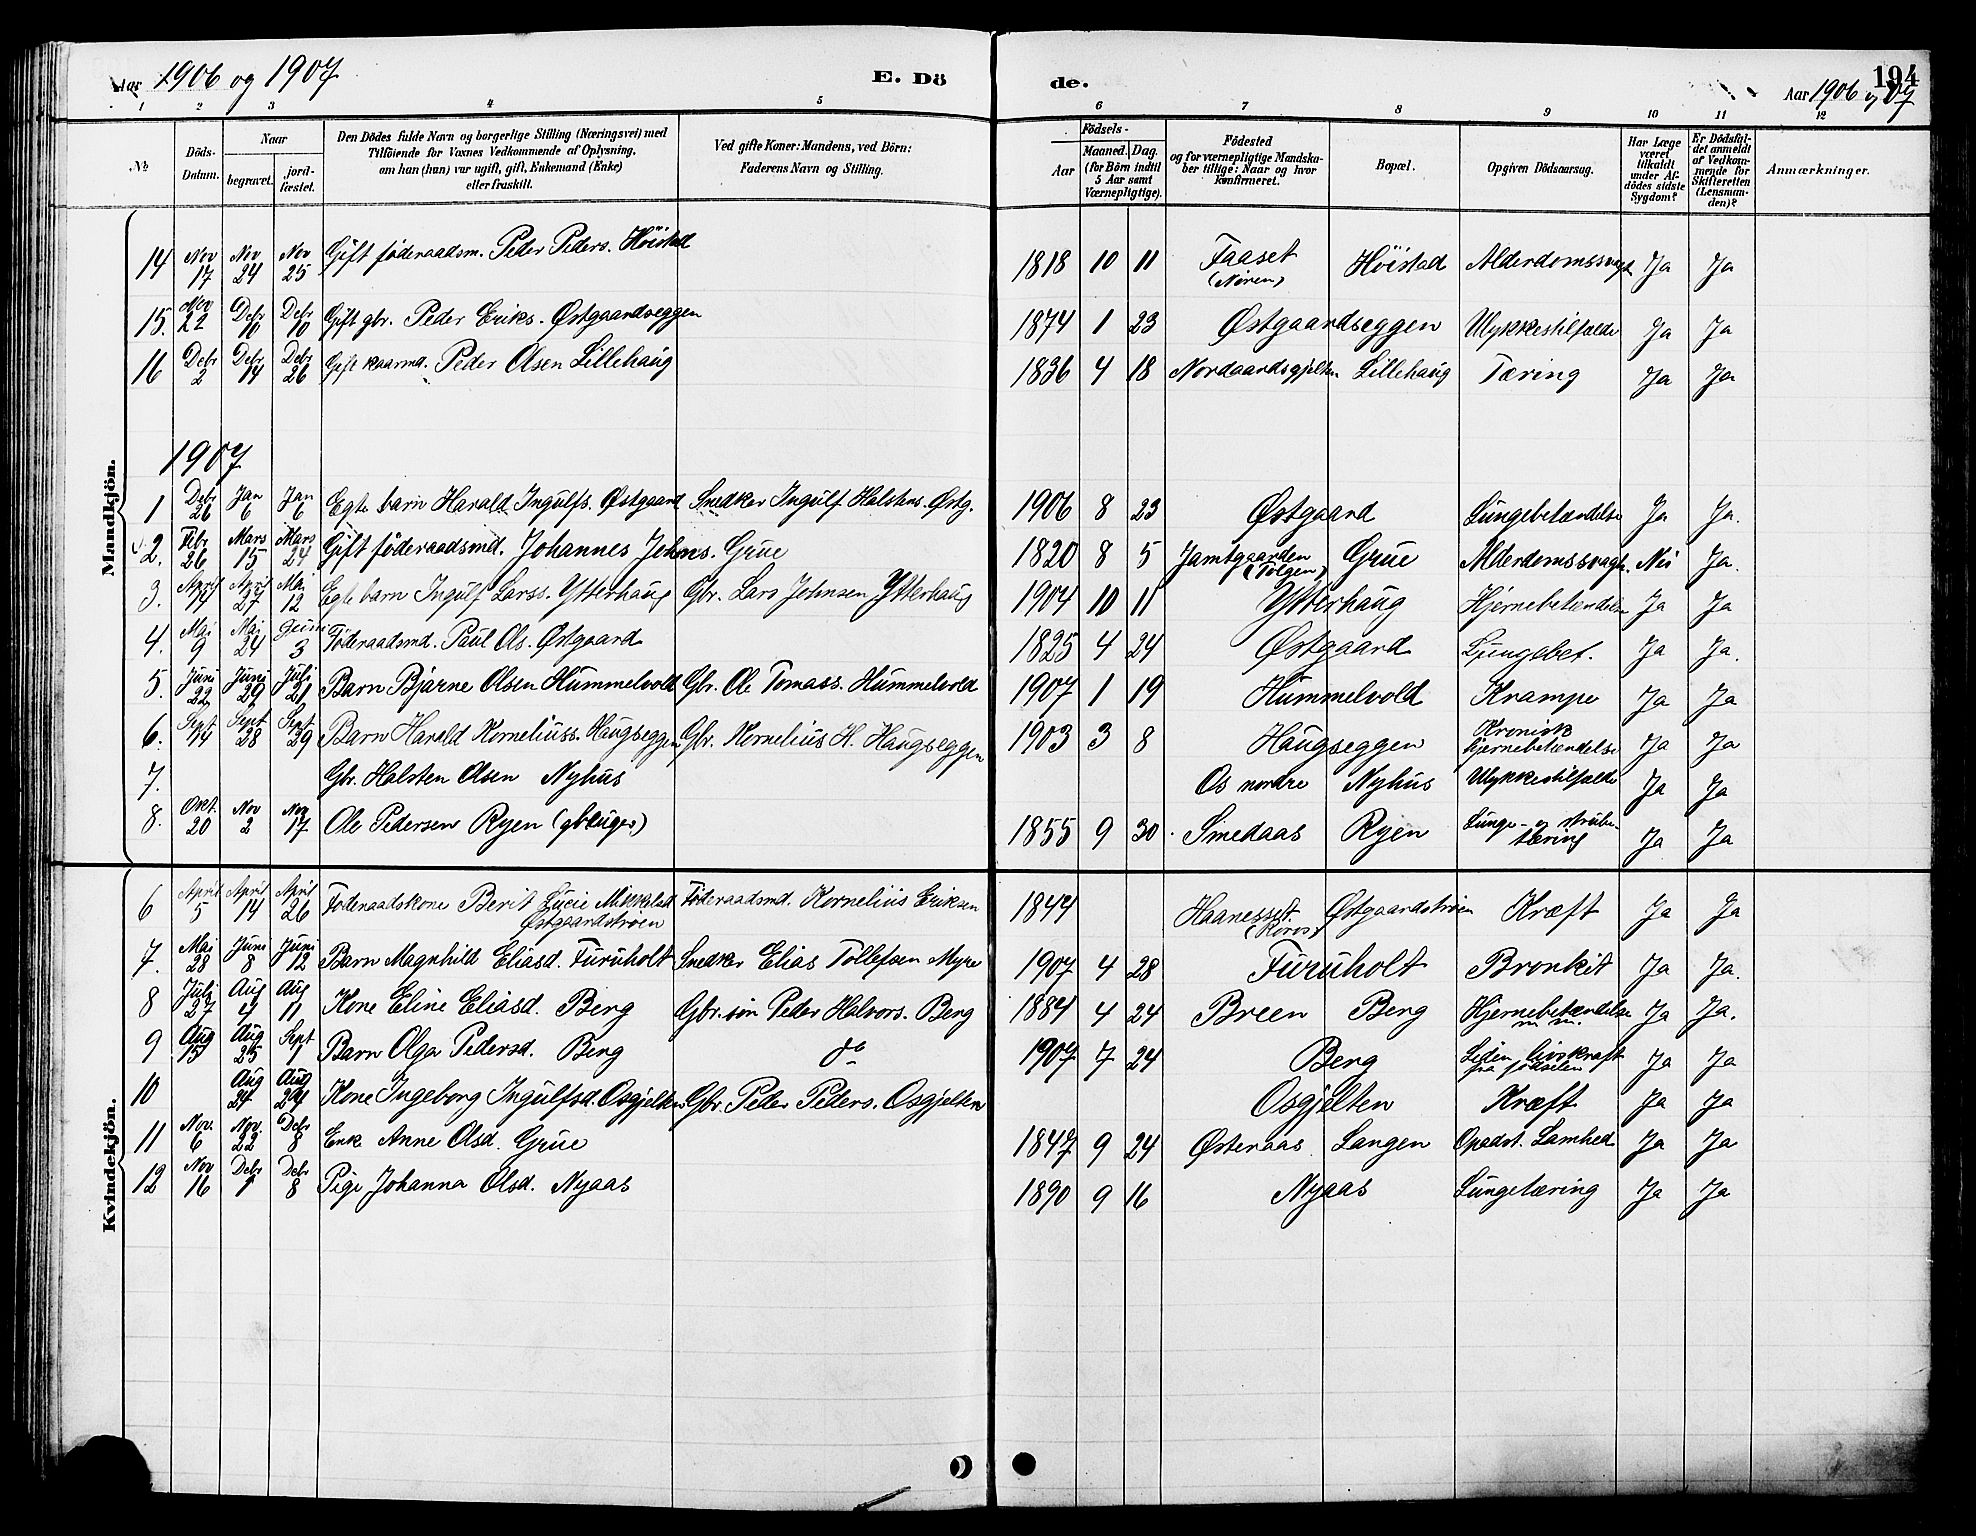 Aar 1906 og 1907 E. Dö de. 194 Aar 1906 og 07
1 2 3 4 5 6 7 8 9 10 11 12
No
Döds-Datum.
Naar begravet. jordfæstet.
Den Dödes fulde Navn og borgerlige Stilling (Næringsvei) med
Tilföiende for Voxnes Vedkommende af Oplysning,
om han (hun) var ugift, gift, Enkemand (Enke)
eller fraskilt.
Ved gifte Koner: Mandens, ved Börn:
Faderens Navn og Stilling.
Födsels-
Aar Maaned. Dag.
(for Börn indtil
5 Aar samt
Værnepligtige).
Födested
og for værnepligtige Mandska-
ber tillige: Naar og hvor
konfirmeret.
Bopæl.
Opgiven Dödsaarsag.
Har Læge
været
tilkaldt
under Af-
dödes sidste
Sygdom?
Er Dödsfal-
det anmeldt
af Vedkom-
mende for
Skifteretten
(Lensman-
den)?
Anmærkninger.
Mandkjön.
14 Nov 17 Nov 24 Nov 25 Gift föderaadsm. Peder Peders. Höistad 1818 10 11 Faaset (Noren) Höistad Alderdomssvagh. Ja Ja
15. Nov 22 Debr 10 Debr 10 Gift gbr. Peder Eriks. Østgaardseggen 1874 1 23 Østgaardseggen Ulykkestilfælde Ja Ja
16 Debr 2 Debr 14 Debr 26 Gift kaarmd. Peder Olsen Lillehaug 1836 4 18 Nordgaardsgjelten Lillehaug Tæring Ja Ja
1907
1 Debr 26 Jan 6 Jan 6 Egte barn Harald Ingulfs. Østgaard Snedker Ingulf Halstens. Østg. 1906 8 23 Østgaard Lungebetændelse Ja Ja.
2. Febr 26 Mars 15 Mars 24 Gift föderaadsmd. Johannes Johns. Grue 1820 8 5 Jamtgaarden (Tolgen) Grue Alderdomssvagh. Nei Ja.
3. April 14 April 27 Mai 12 Egte barn Ingulf Larss. Ytterhaug Gbr. Lars Johnsen Ytterhaug 1904 10 11 Ytterhaug Hjernebetændelse Ja Ja
4. Mai 9 Mai 24 Juni 3 Föderaadsmd. Paul Ols. Østgaard 1825 4 24 Østgaard Lungebet. Ja Ja.
5. Juni 22 Juni 29 Juli 21 Barn Bjarne Olsen Hummelvold Gbr. Ole Tomass. Hummelvold 1907 1 19 Hummelvold Krampe Ja Ja
6. Sept 14 Sept 28 Sept 29 Barn Harald Korneliuss. Haugseggen Gbr. Kornelius H. Haugseggen 1903 3 8 Haugseggen Kronisk hjernebetændelse Ja Ja
7. Gbr. Halsten Olsen Nyhus Os nordre Nyhus Ulykkestilfælde Ja Ja
8. Okt. 20 Nov 2 Nov 17 Ole Pedersen Ryen (gbruger) 1855 9 30 Smedaas Ryen Lunge- og strubetæring Ja Ja
Kvindekjön.
6 April 5 April 14 April 26 Föderaadskone Berit Lucie Mikkelsd. Østgaardströen Föderaadsmd. Kornelius Eriksen 1844 Haanesset (Röros) Østgaardströen Kræft Ja Ja
7. Mai 28 Juni 8 Juni 12 Barn Magnhild Eliasd. Furuholt Snedker Elias Tollefsen Myre 1907 4 28 Furuholt Bronkit Ja Ja.
8 Juli 27 Aug 4 Aug 11 Kone Eline Eliasd. Berg Gbr. sön Peder Halvors. Berg 1884 4 24 Breen Berg Hjernebetændelse m. m. Ja Ja.
9 Aug 15 Aug 25 Sept 1 Barn Olga Pedersd. Berg do 1907 7 24 Berg Liden livskraft fra födselen Ja Ja
10 Aug 24 Aug 24 Kone Ingeborg Ingulfsd. Osgjelten Gbr. Peder Peders. Osgjelten Osgjelten Kræft Ja Ja
11 Nov. 6 Nov. 22 Debr 8 Enk. Anne Olsd. Grue 1847 9 24 Østeraas Langen Opadst. Lamhed Ja Ja
12 Nov 16 Debr 1 Debr 8 Pige Johanna Olsd. Nyaas 1890 9 16 Nyaas Lungetæring Ja Ja